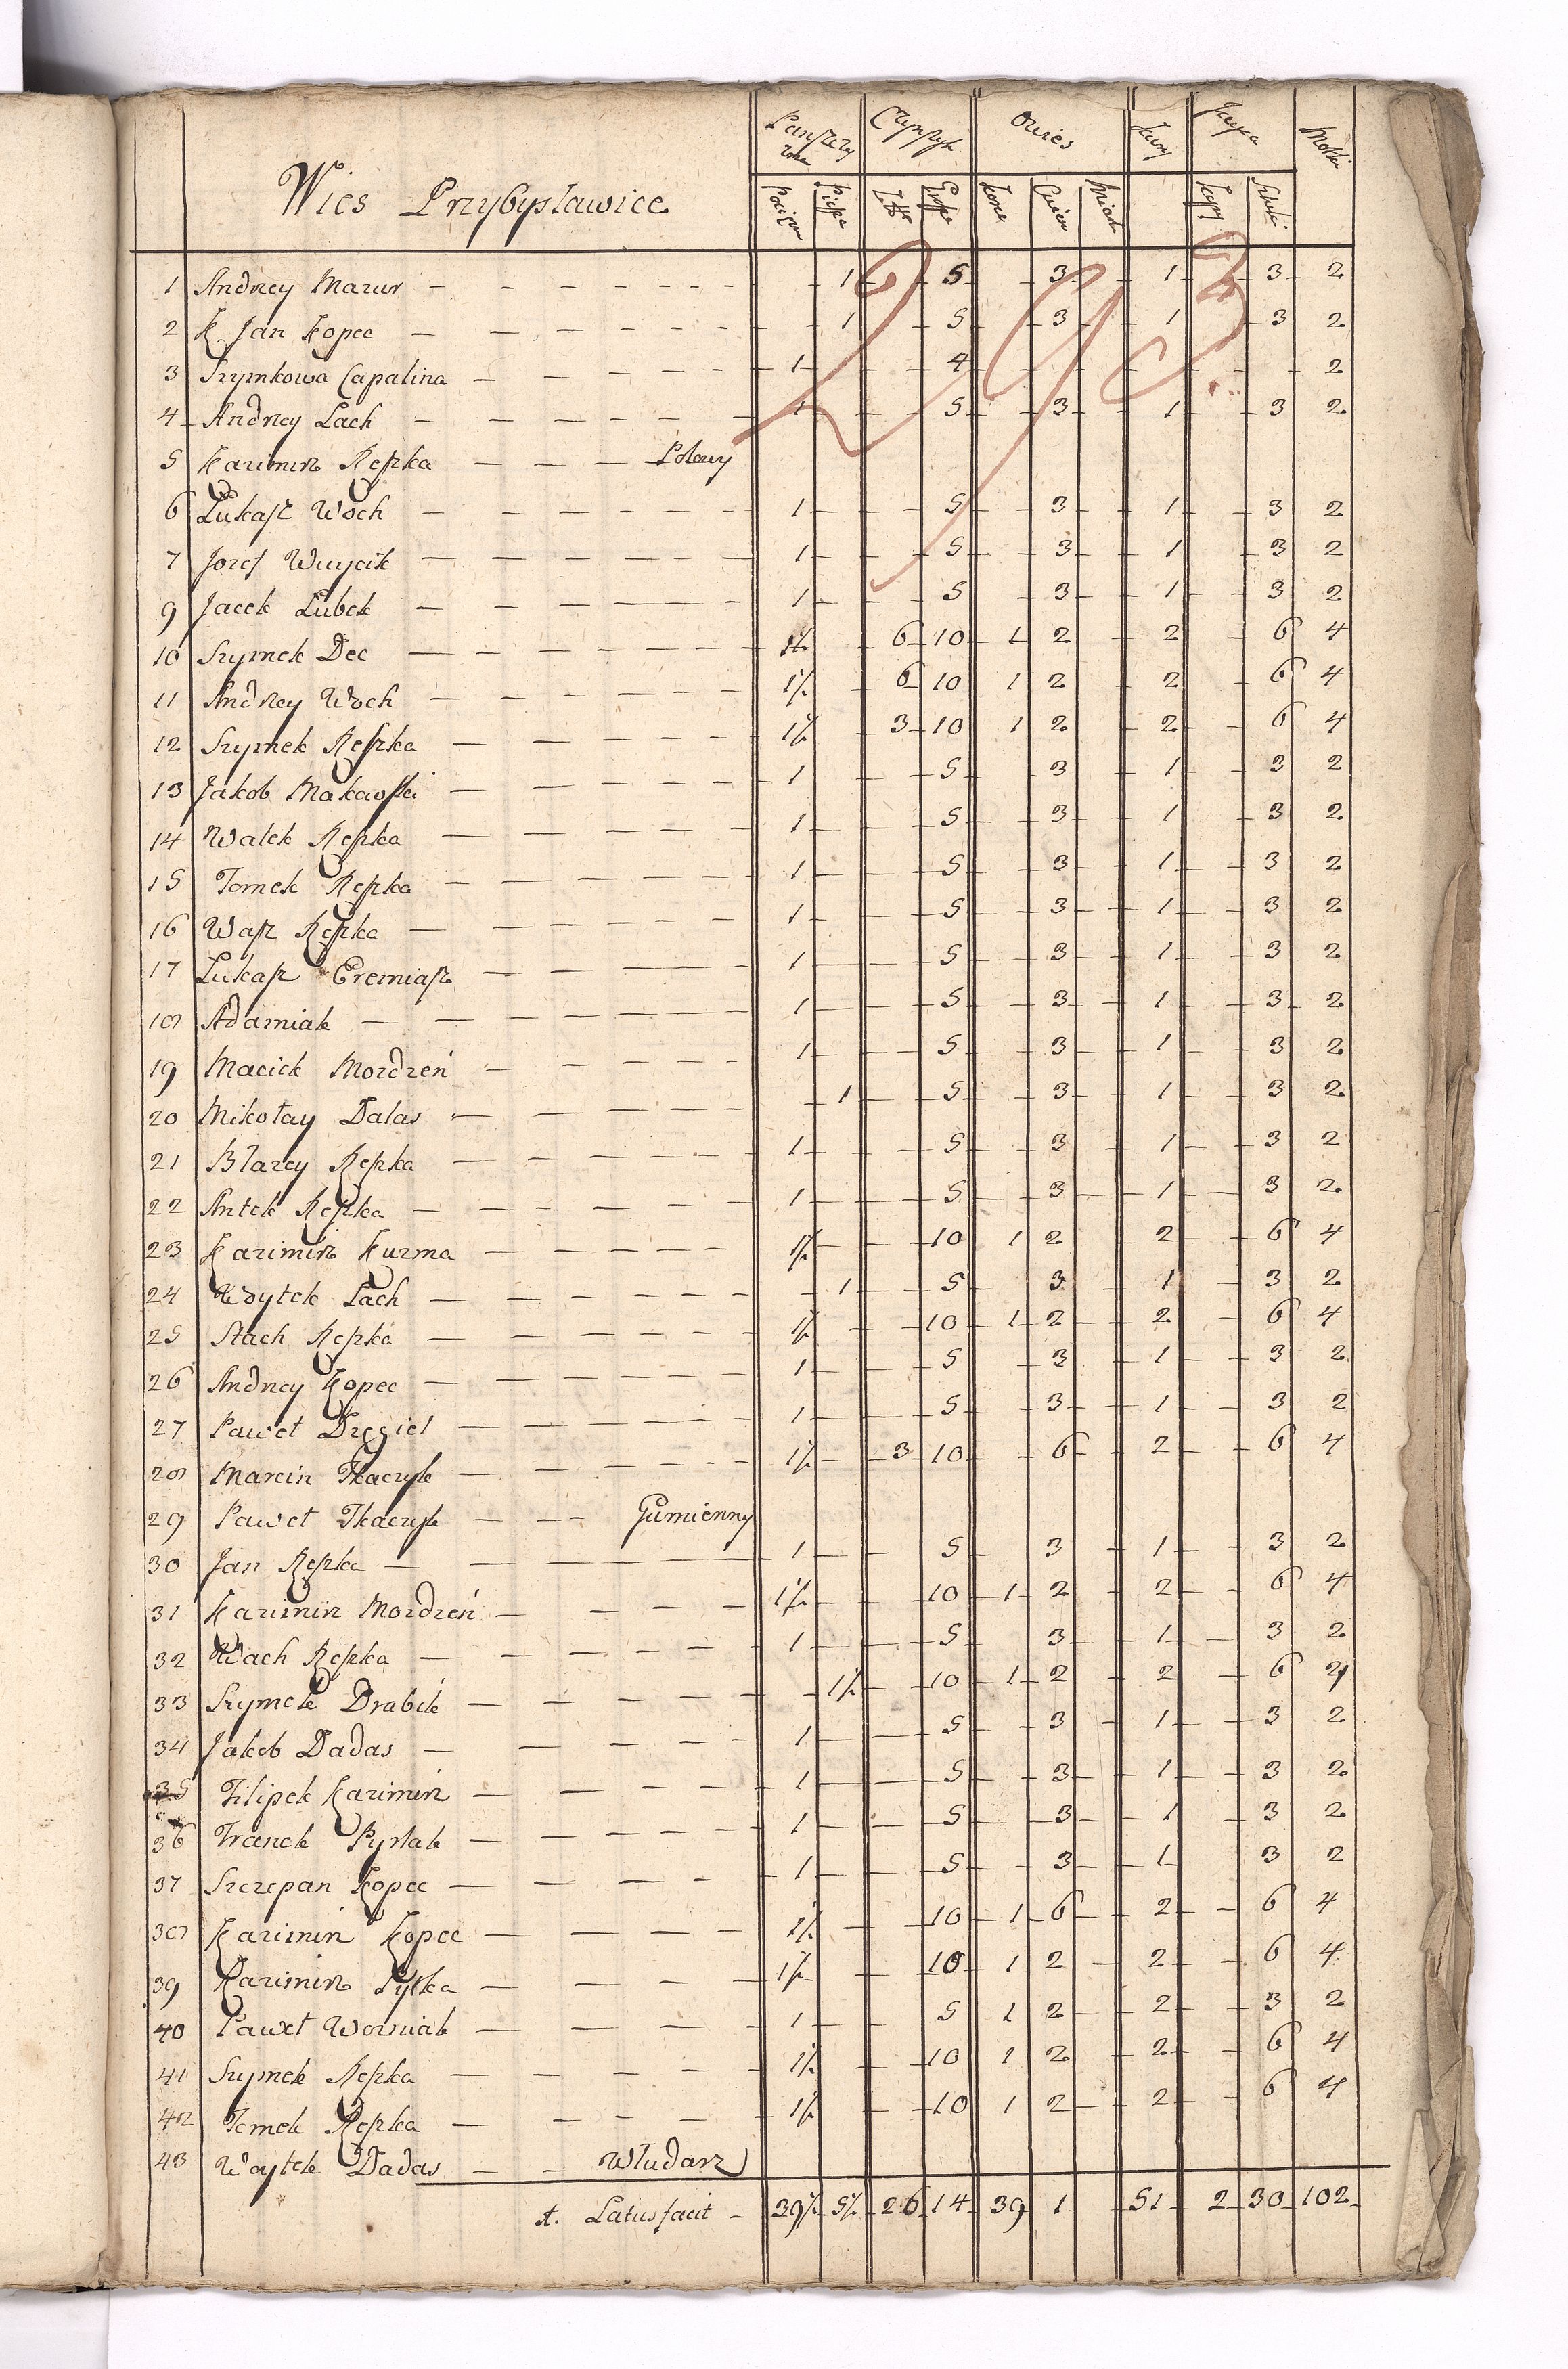 Wies Przybysławice
Owies
1 Andrzey Mazur 1 5 3 1 3 2
2 K Jan Kopec 1 5 3 1 3 2
3 Szymkowa Capalina 1 4 2
4 Andrzey Lach 1 5 3 1 3 2
5 Kazimirz Rzepka Polowy
6 Łukasz Woch 1 5 3 1 3 2
7 Jozef Wuycik 1 5 3 1 3 2
9 Jacek Lubek 1 5 3 1 3 2
10 Szymek Dec 1½ 6 10 1 2 2 6 4
11 Andrzey Woch 1½ 6 10 1 2 2 6 4
12 Szymek Rzepka 1½ 3 10 1 2 2 6 4
13 Jakob Makawski 1 5 3 1 3 2
14 Walek Rzepka 1 5 3 1 3 2
15 Tomek Rzepka 1 5 3 1 3 2
16 Wasz Rzepka 1 5 3 1 3 2
17 Łukasz Eremiasz 1 5 3 1 3 2
18 Adamiak 1 5 3 1 3 2
19 Maciek Mozdzeń 1 5 3 1 3 2
20 Mikołay Dalas 1 5 3 1 3 2
21 Błazey Rzepka 1 5 3 1 3 2
22 Antek Rzepka 1 5 3 1 3 2
23 Kazimirz Kuzma 1½ 10 1 2 2 6 4
24 Woytek Lach 1 5 3 1 3 2
25 Stach Rzepka 1½ 10 1 2 2 6 4
26 Andrzey Kopec 1 5 3 1 3 2
27 Paweł Dręgiel 1 5 3 1 3 2
28 Marcin Tkaczyk 1½ 3 10 6 2 6 4
29 Paweł Tkaczyk Gumienny
30 Jan Rzepka 1 5 3 1 3 2
31 Kazimirz Mozdzeń 1½ 10 1 2 2 6 4
32 Wach Rzepka 1 5 3 1 3 2
33 Szymek Drabik 1½ 10 1 2 2 6 4
34 Jakob Dadas 1 5 3 1 3 2
35 Filipek Kazimirz 1 5 3 1 3 2
36 Franek Pyrtak 1 5 3 1 3 2
37 Szczepan Kopec 1 5 3 1 3 2
38 Kazimirz Kopec 1½ 10 1 6 2 6 4
39 Kazimirz Pytka 1½ 10 1 2 2 6 4
40 Paweł Wozniak 1 5 1 2 2 3 2
41 Szymek Rzepka 1½ 10 1 2 2 6 4
42 Tomek Rzepka 1½ 10 1 2 2 6 4
43 Woytek Dadas Włudarz
A. Latus facit 39½ 5½ 26 14 39 1 51 2 30 102